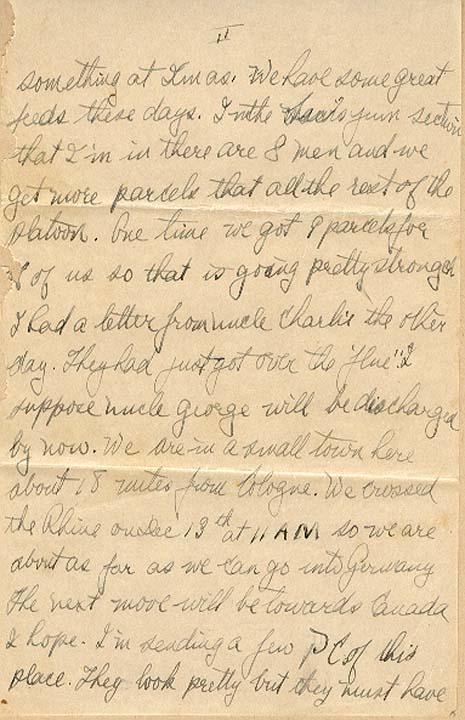 II
something at Xmas. We have some great
feeds these days. In the Lewis gun section
that I'm in there are 8 men and we
get more parcels that all the rest of the
platoon. One time we got 9 parcels for
8 of us so that is going pretty strong
I had a letter from uncle Charlie the other
day. They had just got over the "flue" I
suppose uncle George will be discharged
by now. We are in a small town here
about 18 miles from Cologne. We crossed
the Rhine on Dec 13th at 11 AM so we are
about as far as we can go into Germany
The next move will be towards Canada
I hope. I'm sending a few PC of this
place. They look pretty but they must have